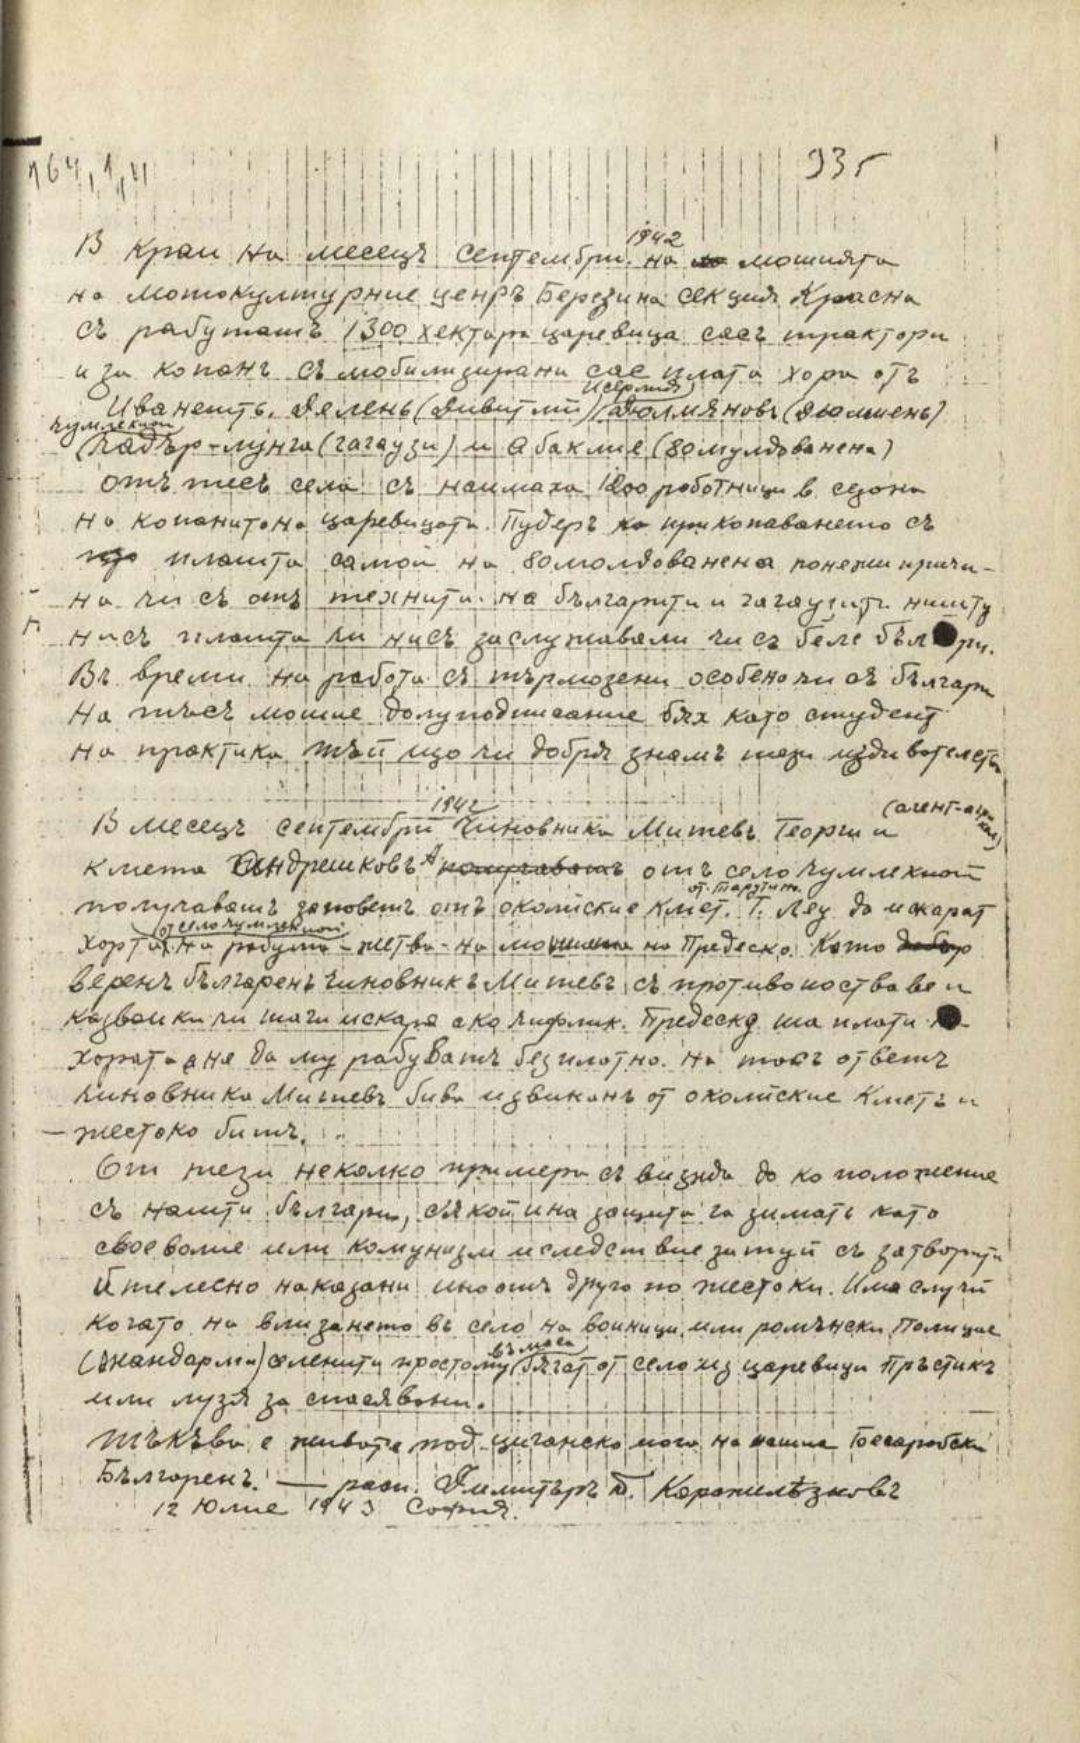 164,1,11
935
В краи на месецъ септембри 1942 на мошията
на мотокултурние ценръ Березина секция Красна
съ работатъ 1300 хектара царевица съсъ трактори
и за копанъ съ мобилизирани сас плата хора отъ
Иванешть, Делень (Дивитлий) Исерлия Долмяновъ (Дюлмень)
Чумлекиой Чадър-лунга (гагаузи) и Абаклие (80 мулдованена)
отъ тесъ села съ наимаха 1200 роботници в сезона
на копанито на царевицата. Пудеръ прикопаването съ
плашта самой на 80 молдованена понежи причи-
на чи съ отъ технити. на българити и гагаузити ништу
нисъ плашта чи нисъ заслужавали чи съ беле бъл ри.
Въ времи на работа съ търмозени особено чи съ българи
на тъсъ мошие долуподписание бях като студент
на практика тъй що чи добря знамъ тези издивателства
В месецъ септембрий 1942 чиновника Митевъ Георги и (агент-агри кол)
кмета Андрешковъ А получаватъ отъ село Чумлекиой
получаватъ заповетъ отъ околиские кмет. от Тарутино Г. Леу да искарат
хорта от село Чумлекиой на работа - жетва - на мошията на Предеско. Като добър
веренъ българенъ чиновникъ Митевъ съ противопоставе и
казваики чи таги искара ако чифлик. Предеску ша плати на
хората а не да му рабуватъ безплатно. На тосъ ответъ
чиновника Митевъ бива извиканъ от околиские Кметъ и
- жестоко битъ.
От тези неколко примери съ вижда до ко положение
съ нашти българи, съкой ина защита га зиматъ като
своеволие или комунизм и следствие затуй съ затворити
и телесно наказани ино отъ друго по жестоки. Има случи
когато на влизането въ село на воиници или ромънски Полицие
(жандарми) селенити простому въ маса бягат от село из царевици Пръстикъ
или лузя за спасявани.
Тъкъва е живота под циганска нога на нашиа Бесарабски
Българенъ. — разп. Димитъръ Д. Карапилѣзковъ
12 Юлие 1943 София.